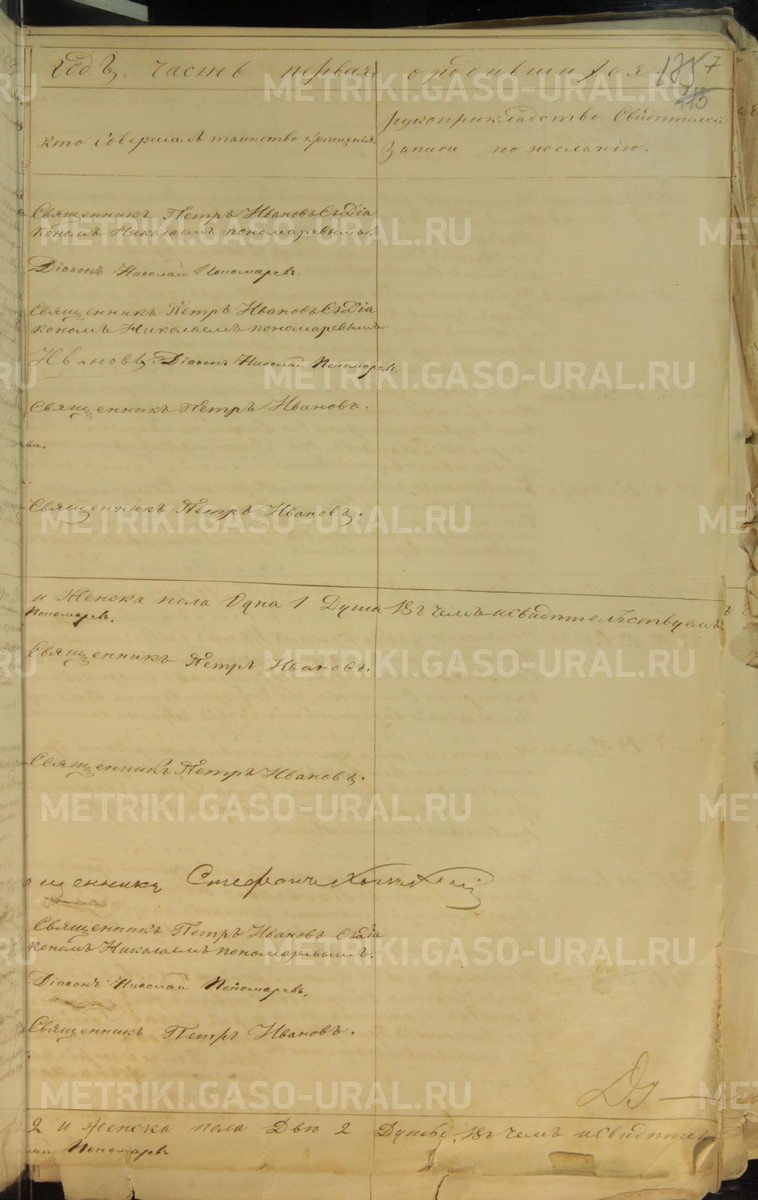 годъ, часть первая, о родившихся 1857
215
кто совершилъ таинство крещенія
рукоприкладство свидѣтелей
записи по желанію.
Священникъ Петръ Ивановъ съ діа
кономъ Николаемъ пономаревымъ.
Діаконъ Николай Пономаревъ.
Священникъ Петръ Ивановъ съ Діа
кономъ Николаемъ пономаревымъ
Ивановъ. Діаконъ Николай Пономаревъ.
Священникъ Петръ Ивановъ.
Священникъ Петръ Ивановъ.
и Женска пола Одна 1 Душа Въ чемъ и свидѣтельствуемъ
Пономаревъ.
Священникъ Петръ Ивановъ.
Священникъ Петръ Ивановъ.
щенникъ Стефанъ
Священникъ Петръ Ивановъ съ діа
кономъ Николаемъ пономаревымъ.
Діаконъ Николай Пономаревъ.
Священникъ Петръ Ивановъ.
2 и Женска пола Двѣ 2 Душы. Въ чемъ и свидѣтел
лай Пономаревъ
METRIKI.GASO-URAL.RU